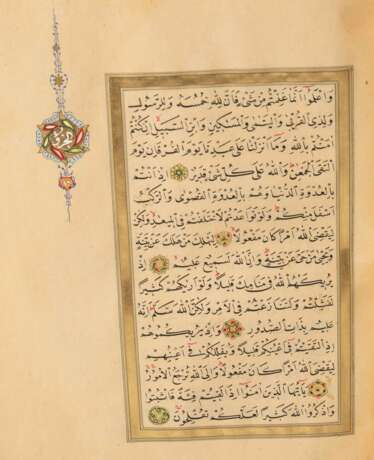 وَاعْلَمُوا اَنَّمَا غَنِمْتُمْ مِنْ شَيْءٍ فَاَنَّ لِلّٰهِ خُمُسَهُ وَلِلرَّسُولِ
وَلِذِي الْقُرْبٰى وَالْيَتٰامٰى وَالْمَسٰاكِينِ وَابْنِ السَّبِيلِ اِنْ كُنْتُمْ
اٰمَنْتُمْ بِاللّٰهِ وَمَا اَنْزَلْنَا عَلٰى عَبْدِنَا يَوْمَ الْفُرْقَانِ يَوْمَ
الْتَقَى الْجَمْعَانِ وَاللّٰهُ عَلٰى كُلِّ شَيْءٍ قَدِيرٌ اِذْ اَنْتُمْ
بِالْعُدْوَةِ الدُّنْيَا وَهُمْ بِالْعُدْوَةِ الْقُصْوٰى وَالرَّكْبُ
اَسْفَلَ مِنْكُمْ وَلَوْ تَوَاعَدْتُمْ لَاخْتَلَفْتُمْ فِي الْمِيعَادِ وَلٰكِنْ
لِيَقْضِيَ اللّٰهُ اَمْرًا كَانَ مَفْعُولًا لِيَهْلِكَ مَنْ هَلَكَ عَنْ بَيِّنَةٍ
وَيَحْيٰى مَنْ حَيَّ عَنْ بَيِّنَةٍ وَاِنَّ اللّٰهَ لَسَمِيعٌ عَلِيمٌ اِذْ
يُرِيكَهُمُ اللّٰهُ فِي مَنَامِكَ قَلِيلًا وَلَوْ اَرٰيكَهُمْ كَثِيرًا
لَفَشِلْتُمْ وَلَتَنَازَعْتُمْ فِي الْاَمْرِ وَلٰكِنَّ اللّٰهَ سَلَّمَ اِنَّهُ
عَلِيمٌ بِذَاتِ الصُّدُورِ وَاِذْ يُرِيكُمُوهُمْ
اِذِ الْتَقَيْتُمْ فِي اَعْيُنِكُمْ قَلِيلًا وَيُقَلِّلُكُمْ فِي اَعْيُنِهِمْ
لِيَقْضِيَ اللّٰهُ اَمْرًا كَانَ مَفْعُولًا وَاِلَى اللّٰهِ تُرْجَعُ الْاُمُورُ
يَا اَيُّهَا الَّذِينَ اٰمَنُوا اِذَا لَقِيتُمْ فِئَةً فَاثْبُتُوا
وَاذْكُرُوا اللّٰهَ كَثِيرًا لَعَلَّكُمْ تُفْلِحُونَ